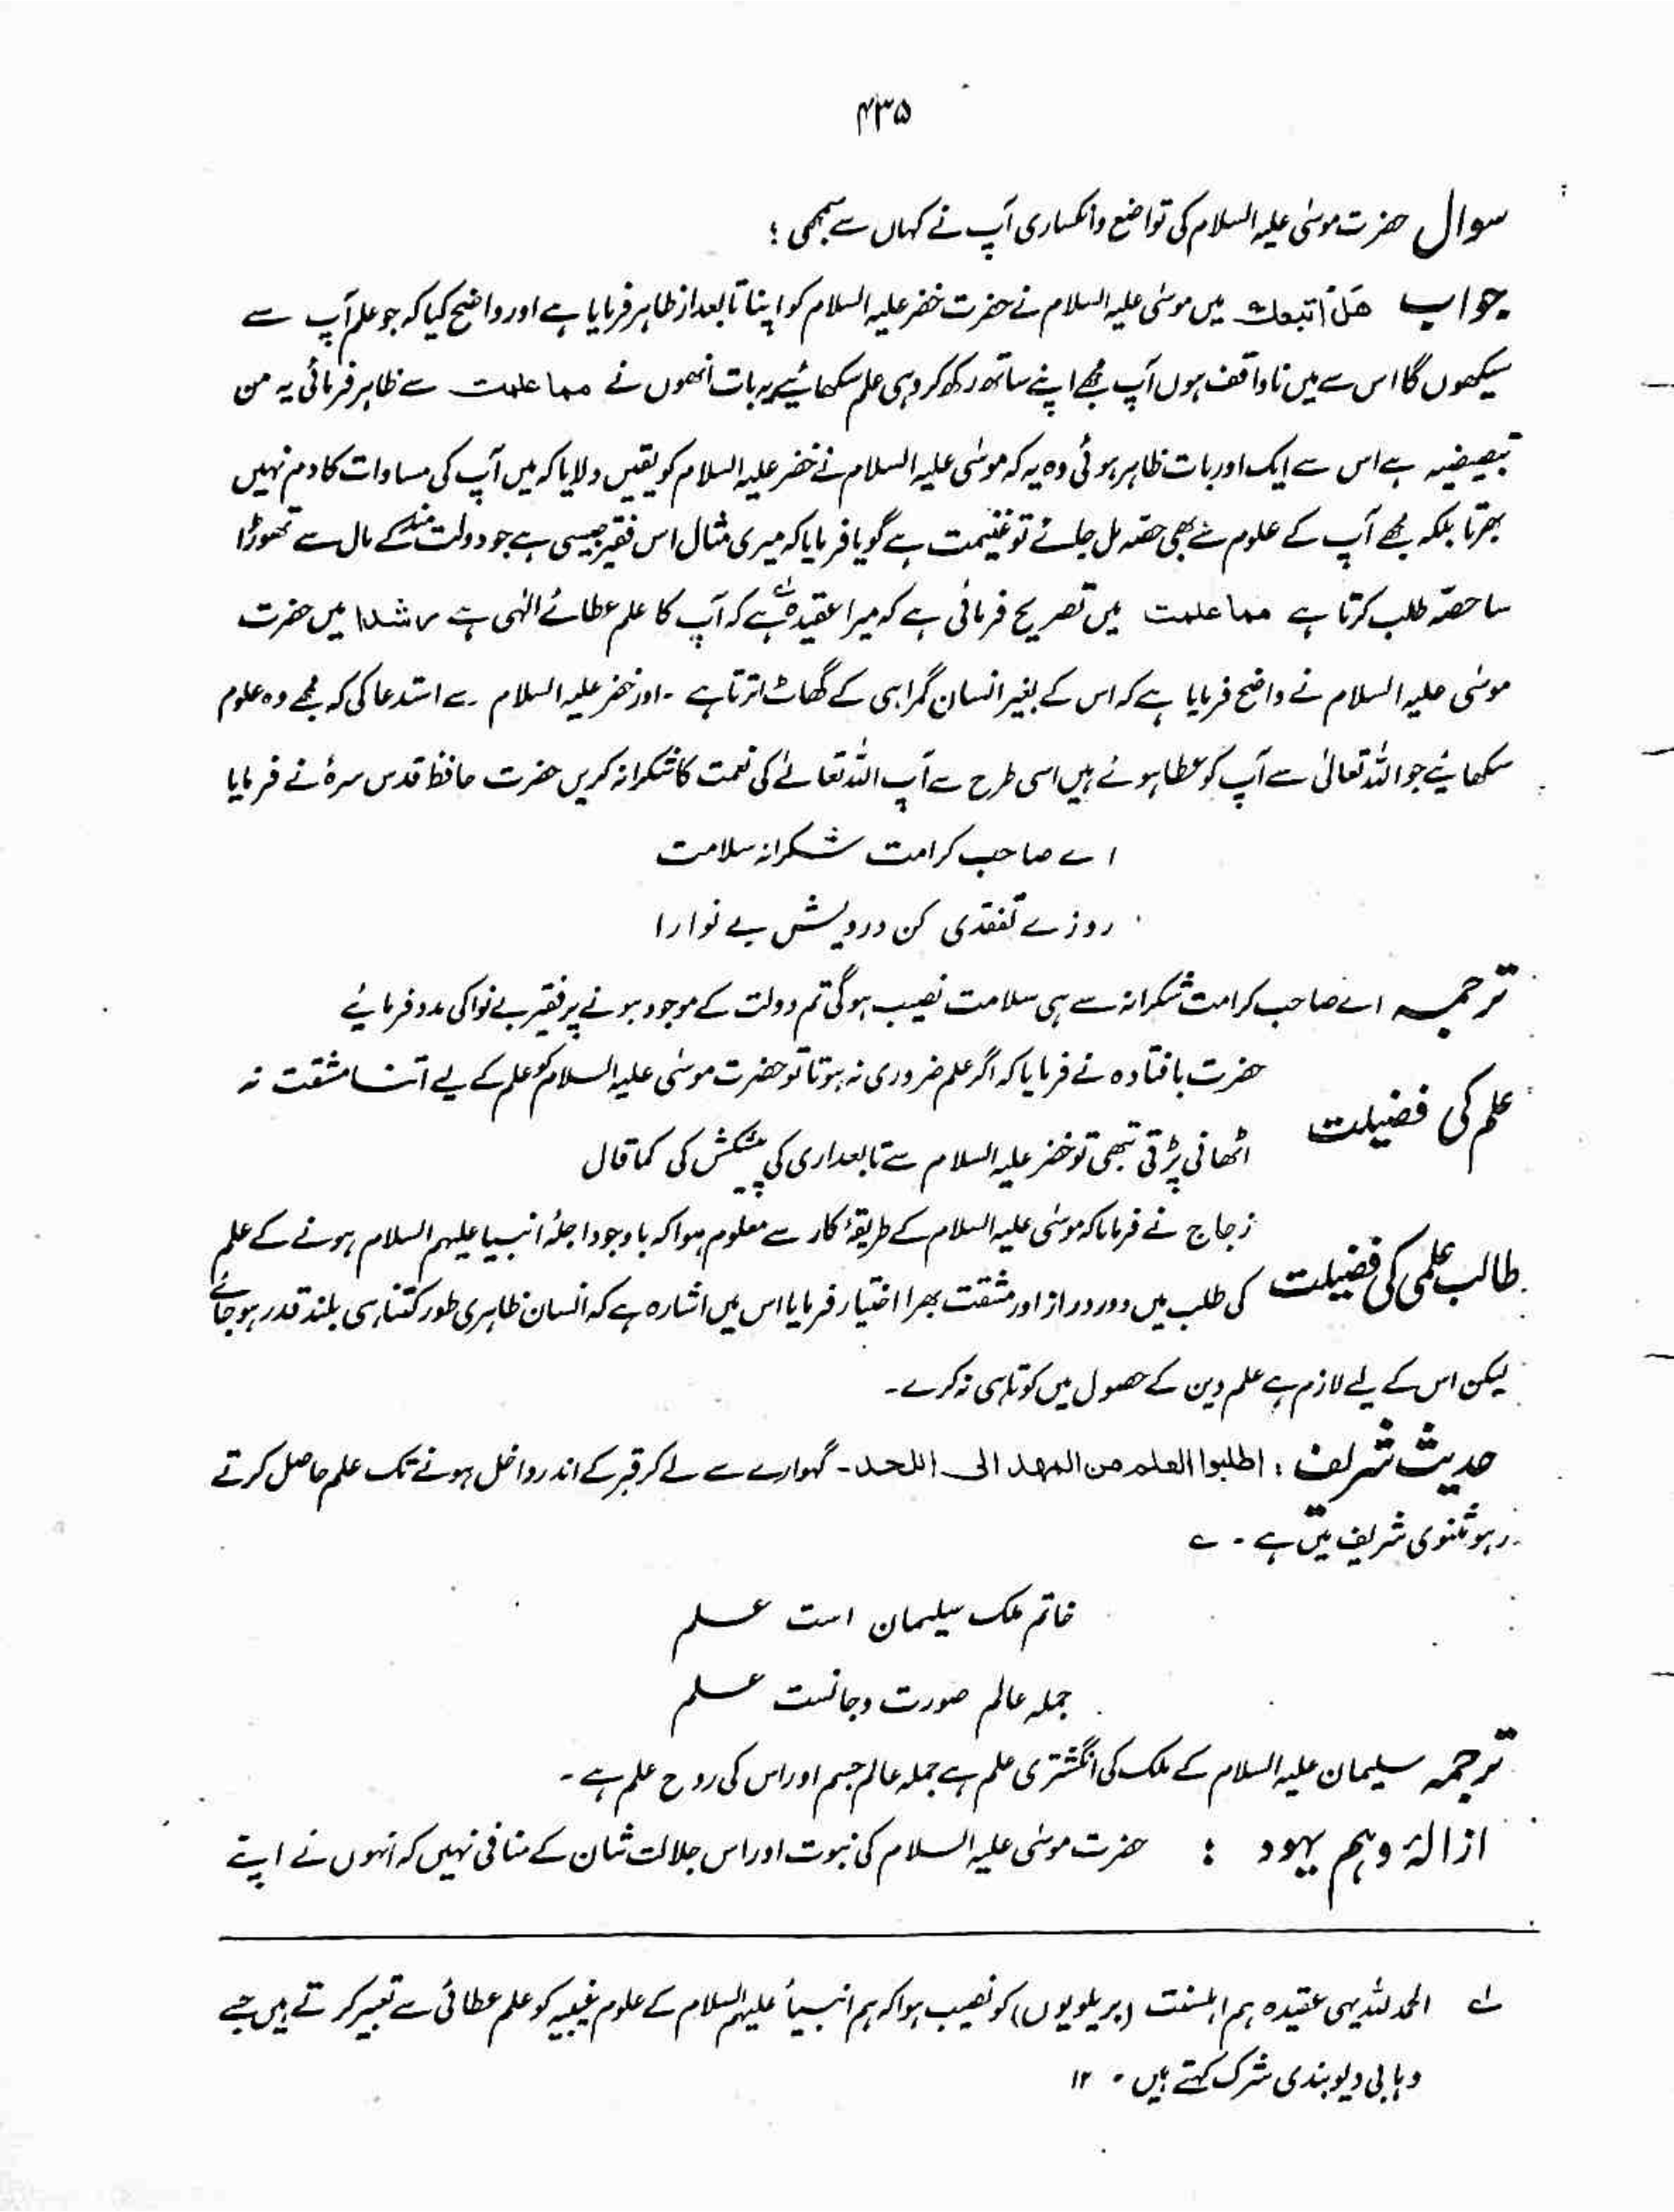 ۴۳۵
سوال حضرت موسٰی علیہ السلام کی تواضع وانکساری آپ نے کہاں سے سمجھی ؟
جواب ھل اتبعك میں موسٰی علیہ السلام نے حضرت خضر علیہ السلام کو اپنا تابعداز ظاہر فرمایا ہے اور واضح کیا کہ جو علم آپ سے
سیکھوں گا اس سے میں ناواقف ہوں آپ مجھے اپنے ساتھ رکھ کر وہی علم سکھائیے یہ بات انھوں نے مما علمت سے ظاہر فرمائی یہ من
تبعیضیہ ہے اس سے ایک اور بات ظاہر ہوئی وہ یہ کہ موسٰی علیہ السلام نے خضر علیہ السلام کو یقیں دلایا کہ میں آپ کی مساوات کا دم نہیں
بھرتا بلکہ مجھے آپ کے علوم سے بھی حصّہ مل جائے تو غنیمت ہے گویا فرمایا کہ میری مثال اس فقیر جیسی ہے جو دولت مند کے مال سے تھوڑا
سا حصّہ طلب کرتا ہے مما علمت میں تصریح فرمائی ہے کہ میرا عقیدہ لہ ہے کہ آپ کا علم عطائے الٰہی ہے رشدا میں حضرت
موسٰی علیہ السلام نے واضح فرمایا ہے کہ اس کے بغیر انسان گمراہی کے گھاٹ اترتا ہے ۔ اور خضر علیہ السلام سے استدعا کی کہ مجھے وہ علوم
سکھائیے جو اللہ تعالیٰ سے آپ کو عطا ہوئے ہیں اسی طرح سے آپ اللہ تعالےٰ کی نعمت کا شکرانہ کریں حضرت حافظ قدس سرہٗ نے فرمایا
اے صاحب کرامت شکرانہ سلامت
روزے تفقدی کن درویش بے نوارا
ترجمہ اے صاحب کرامت شکرانہ سے ہی سلامت نصیب ہوگی تم دولت کے موجود ہونے پر فقیر بے نوا کی مدد فرمائیے
علم کی فضیلت حضرت بافتادہ نے فرمایا کہ اگر علم ضروری نہ ہوتا تو حضرت موسٰی علیہ السلام کو علم کے لیے اتنا مشقت نہ
اٹھانی پڑتی تبھی تو خضر علیہ السلام سے تابعداری کی پیشکش کی کما قال
طالب علمی کی فضیلت زجاج نے فرمایا کہ موسٰی علیہ السلام کے طریقۂ کار سے معلوم ہوا کہ باوجود اجلۂ انبیا علیہم السلام ہونے کے علم
کی طلب میں دور دراز اور مشقت بھرا اختیار فرمایا اس میں اشارہ ہے کہ انسان ظاہری طور کتنا ہی بلند قدر ہو جائے
لیکن اس کے لیے لازم ہے علم دین کے حصول میں کوتاہی نہ کرے ۔
حدیث شریف : اطلبوا العلم من المھد الی اللحد ۔ گہوارے سے لے کر قبر کے اندر داخل ہونے تک علم حاصل کرتے
رہو مثنوی شریف میں ہے ۔ ے
خاتم ملک سیلیمان است علم
جملہ عالم صورت وجانست علم
ترجمہ سلیمان علیہ السلام کے ملک کی انگشتری علم ہے جملہ عالم جسم اور اس کی روح علم ہے ۔
ازالۂ وہم یہود : حضرت موسٰی علیہ السلام کی نبوت اور اس جلالت شان کے منافی نہیں کہ انہوں نے اپنے
لہ الحمد للہ یہی عقیدہ ہم اہلسنت (بریلویوں) کو نصیب ہوا کہ ہم انبیأ علیہم السلام کے علوم غیبیہ کو علم عطائی سے تعبیر کرتے ہیں جسے
وہابی دیوبندی شرک کہتے ہیں ۔ ۱۲